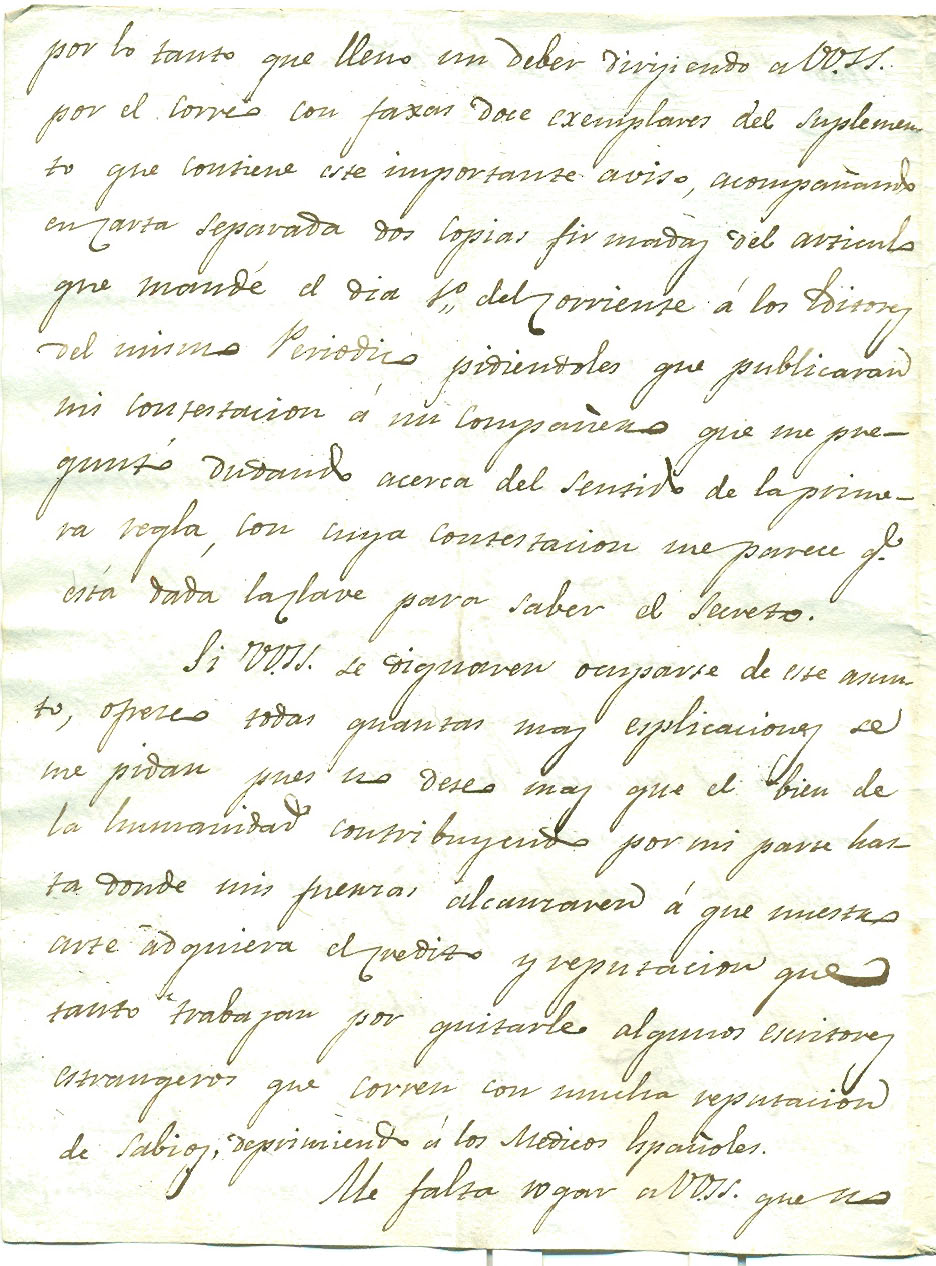 por lo tanto que lleno un deber dirijiendo a VV.SS.
por el correo con faxas doce exemplares del suplemen
to que contiene este importante aviso, acompañando
en carta separada dos copias firmadas del articulo
que mandé el dia 1º del corriente á los Editores
del mismo Periodico pidiendoles que publicaran
mi contestacion á un compañero que me pre-
guntó dudando acerca del sentido de la prime-
ra regla, con cuya contestacion me parece q.e
está dada la clave para saber el secreto.
Si VV.SS. se dignaren ocuparse de este asun-
to, ofrezco todas quantas mas esplicaciones se
me pidan pues no deseo mas que el bien de
la humanidad contribuyendo por mi parte has-
ta donde mis fuerzas alcanzaren á que nuestro
arte adquiera el credito y reputacion que
tanto trabajan por quitarle algunos escritores
estrangeros que corren con mucha reputacion
de sabios, deprimiendo á los Medicos Españoles.
Me falta rogar a VV.SS. que no